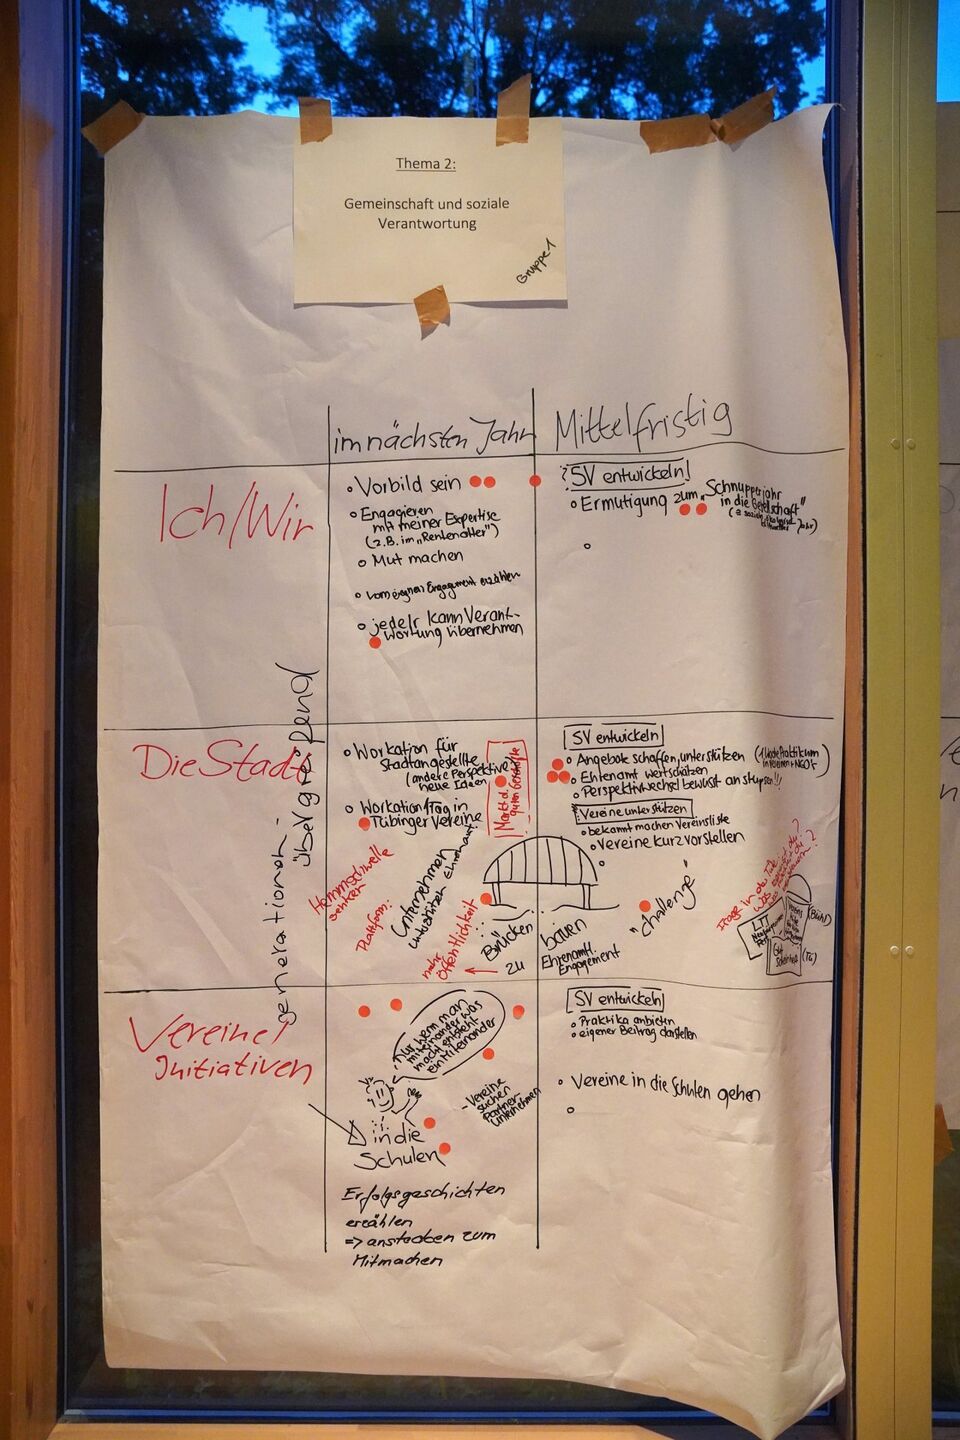 Thema 2:
Gemeinschaft und soziale
Verantwortung
Gruppe 1
im nächsten Jahr
Mittelfristig
Ich/Wir
• Vorbild sein
• Engagieren
mit meiner Expertise
(z.B. im „
• Mut machen
• vom eigenen Engagement erzählen
• jede/r kann Verant-
wortung übernehmen
SV entwickeln
• Ermutigung zum „Schnupperjahr
in die Gesellschaft"
generationen-
übergreifend
Die Stadt
• Workation für
Stadtangestellte
(andere Perspektive
neue Ideen
• Workation/Tag in
Tübinger Vereine
Markt d.
guten Geschäfte
Hemmschwelle
senken
Plattform:
Unternehmen
unterstützen Ehrenamt
mehr
Öffentlichkeit
Brücken
bauen
zu
Ehrenamtl.
Engagement
SV entwickeln
• Angebote schaffen, unterstützen
• Ehrenamt wertschätzen
• Perspektivwechsel bewusst anstupsen!!!
Vereine unterstützen
• bekannt machen Vereinsliste
• Vereine kurz vorstellen
"challenge"
LTT
(Tü)
Vereine/
Initiativen
Nur wenn man
miteinander was
macht entsteht
ein Miteinander
in die
Schulen
- Vereine
suchen
Partner-
unternehmen
Erfolgsgeschichten
erzählen
=> anstecken zum
Mitmachen
SV entwickeln
• Praktika anbieten
• eigener Beitrag darstellen
• Vereine in die Schulen gehen